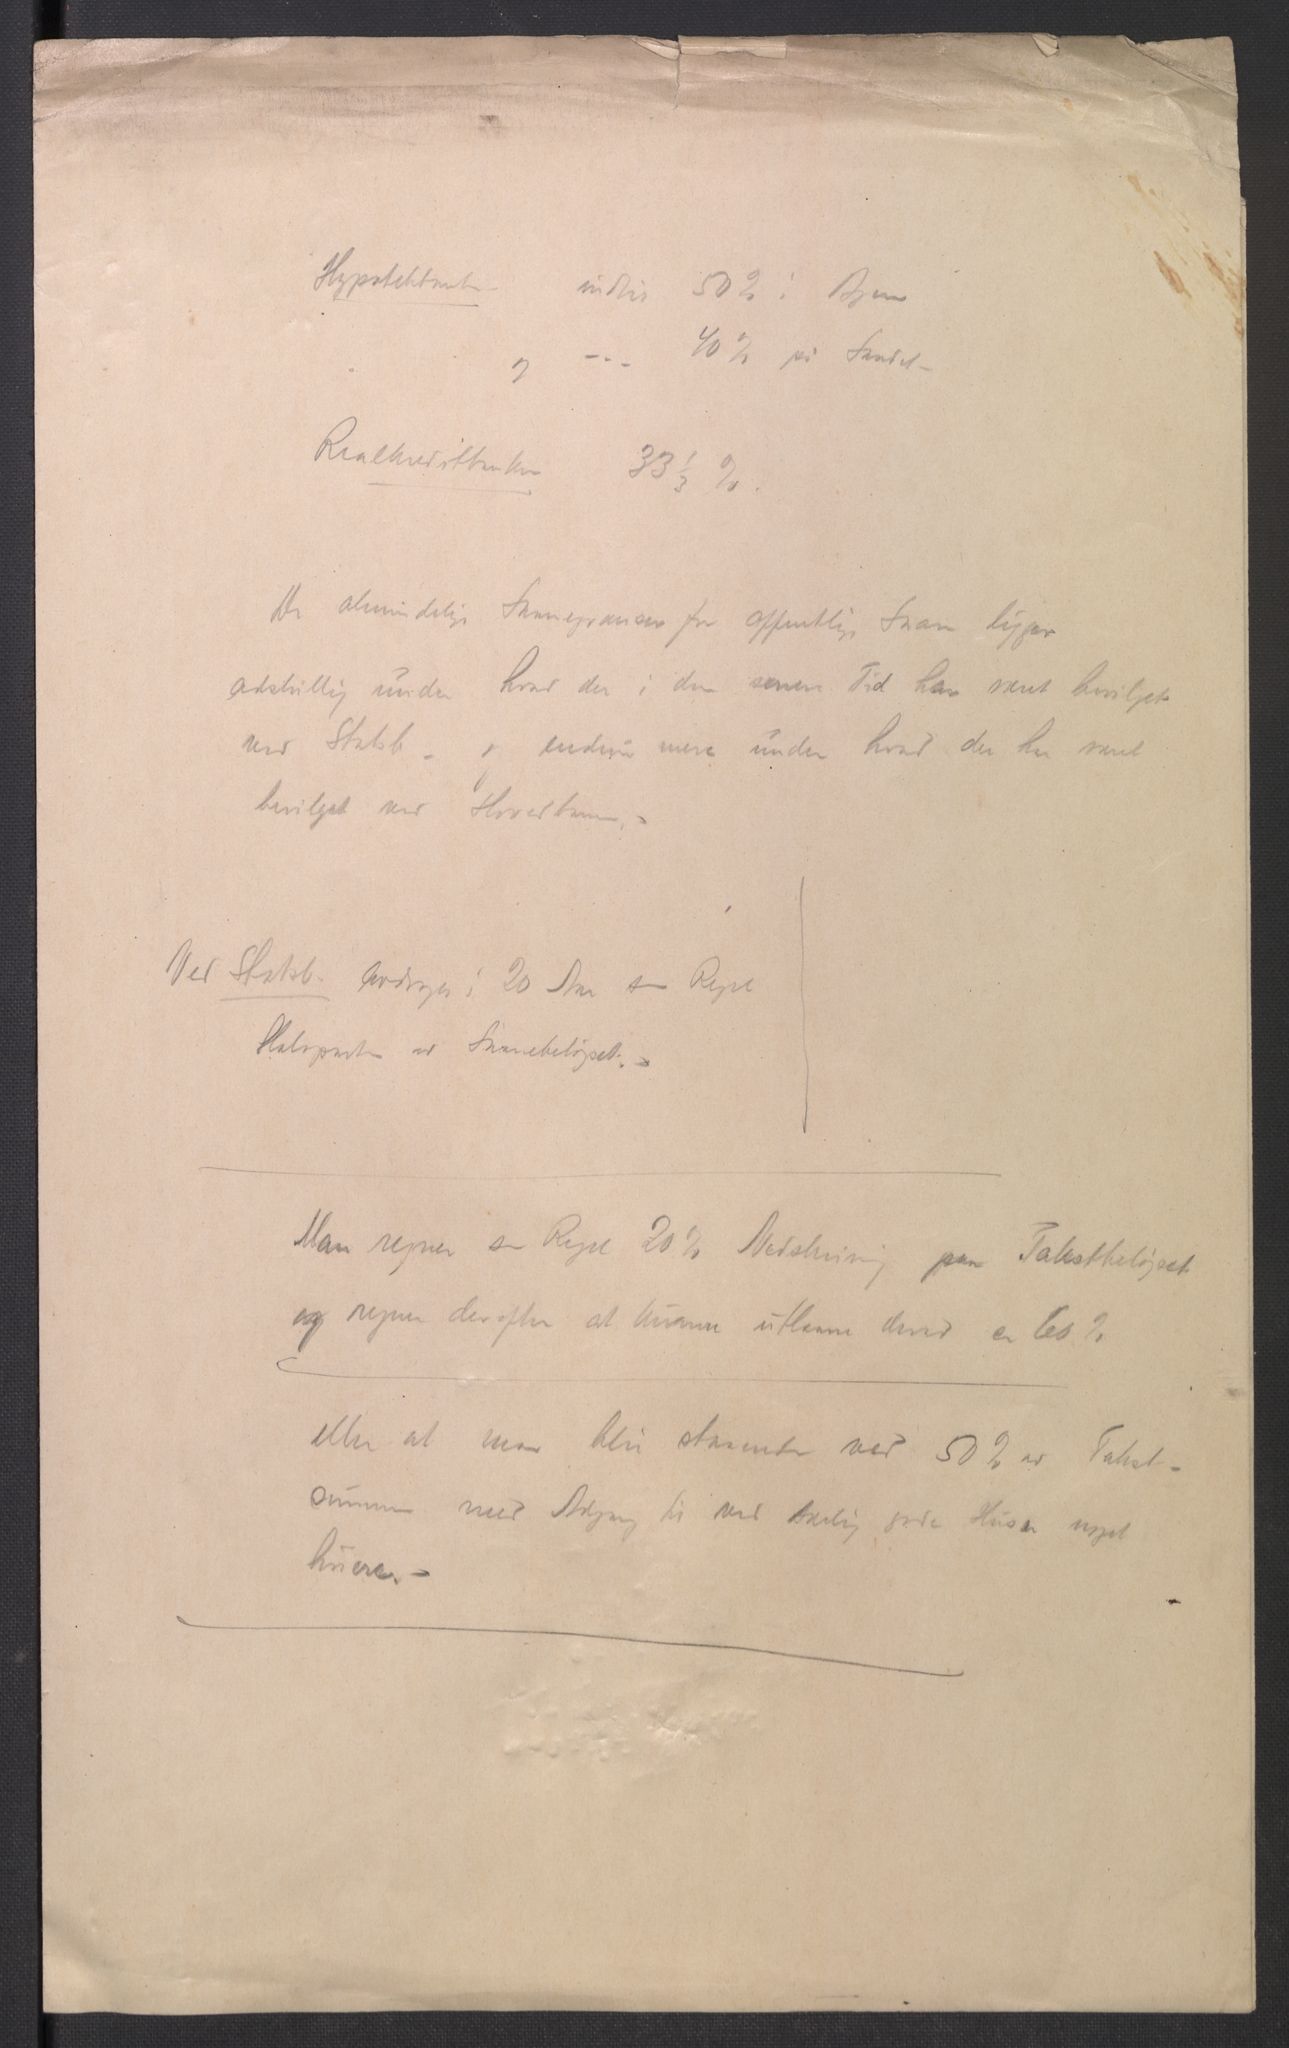 Hypotekbanken indtil 50% i Byen
og --- 40% på Landet -
Realkreditbanken 33 1/3 %.
De almindelige Laanegrænser for offentlige Laan ligger
adskillig under hvad der i den senere Tid har været bevilget
ved Statsb. - og endnu mere under hvad der har været
bevilget ved Hovedbanen. -
Ved Statsb. avdrages i 20 Aar som Regel
Halvparten av Laanebeløpet. -
Man regner som Regel 20% Nedskrivning paa Takstbeløpet
og regner derefter at kunne utlaane derav ca 60%
eller at man blir staaende ved 50% av Takst-
summen med Adgang til ved særlig gode Huse noget
høiere. -